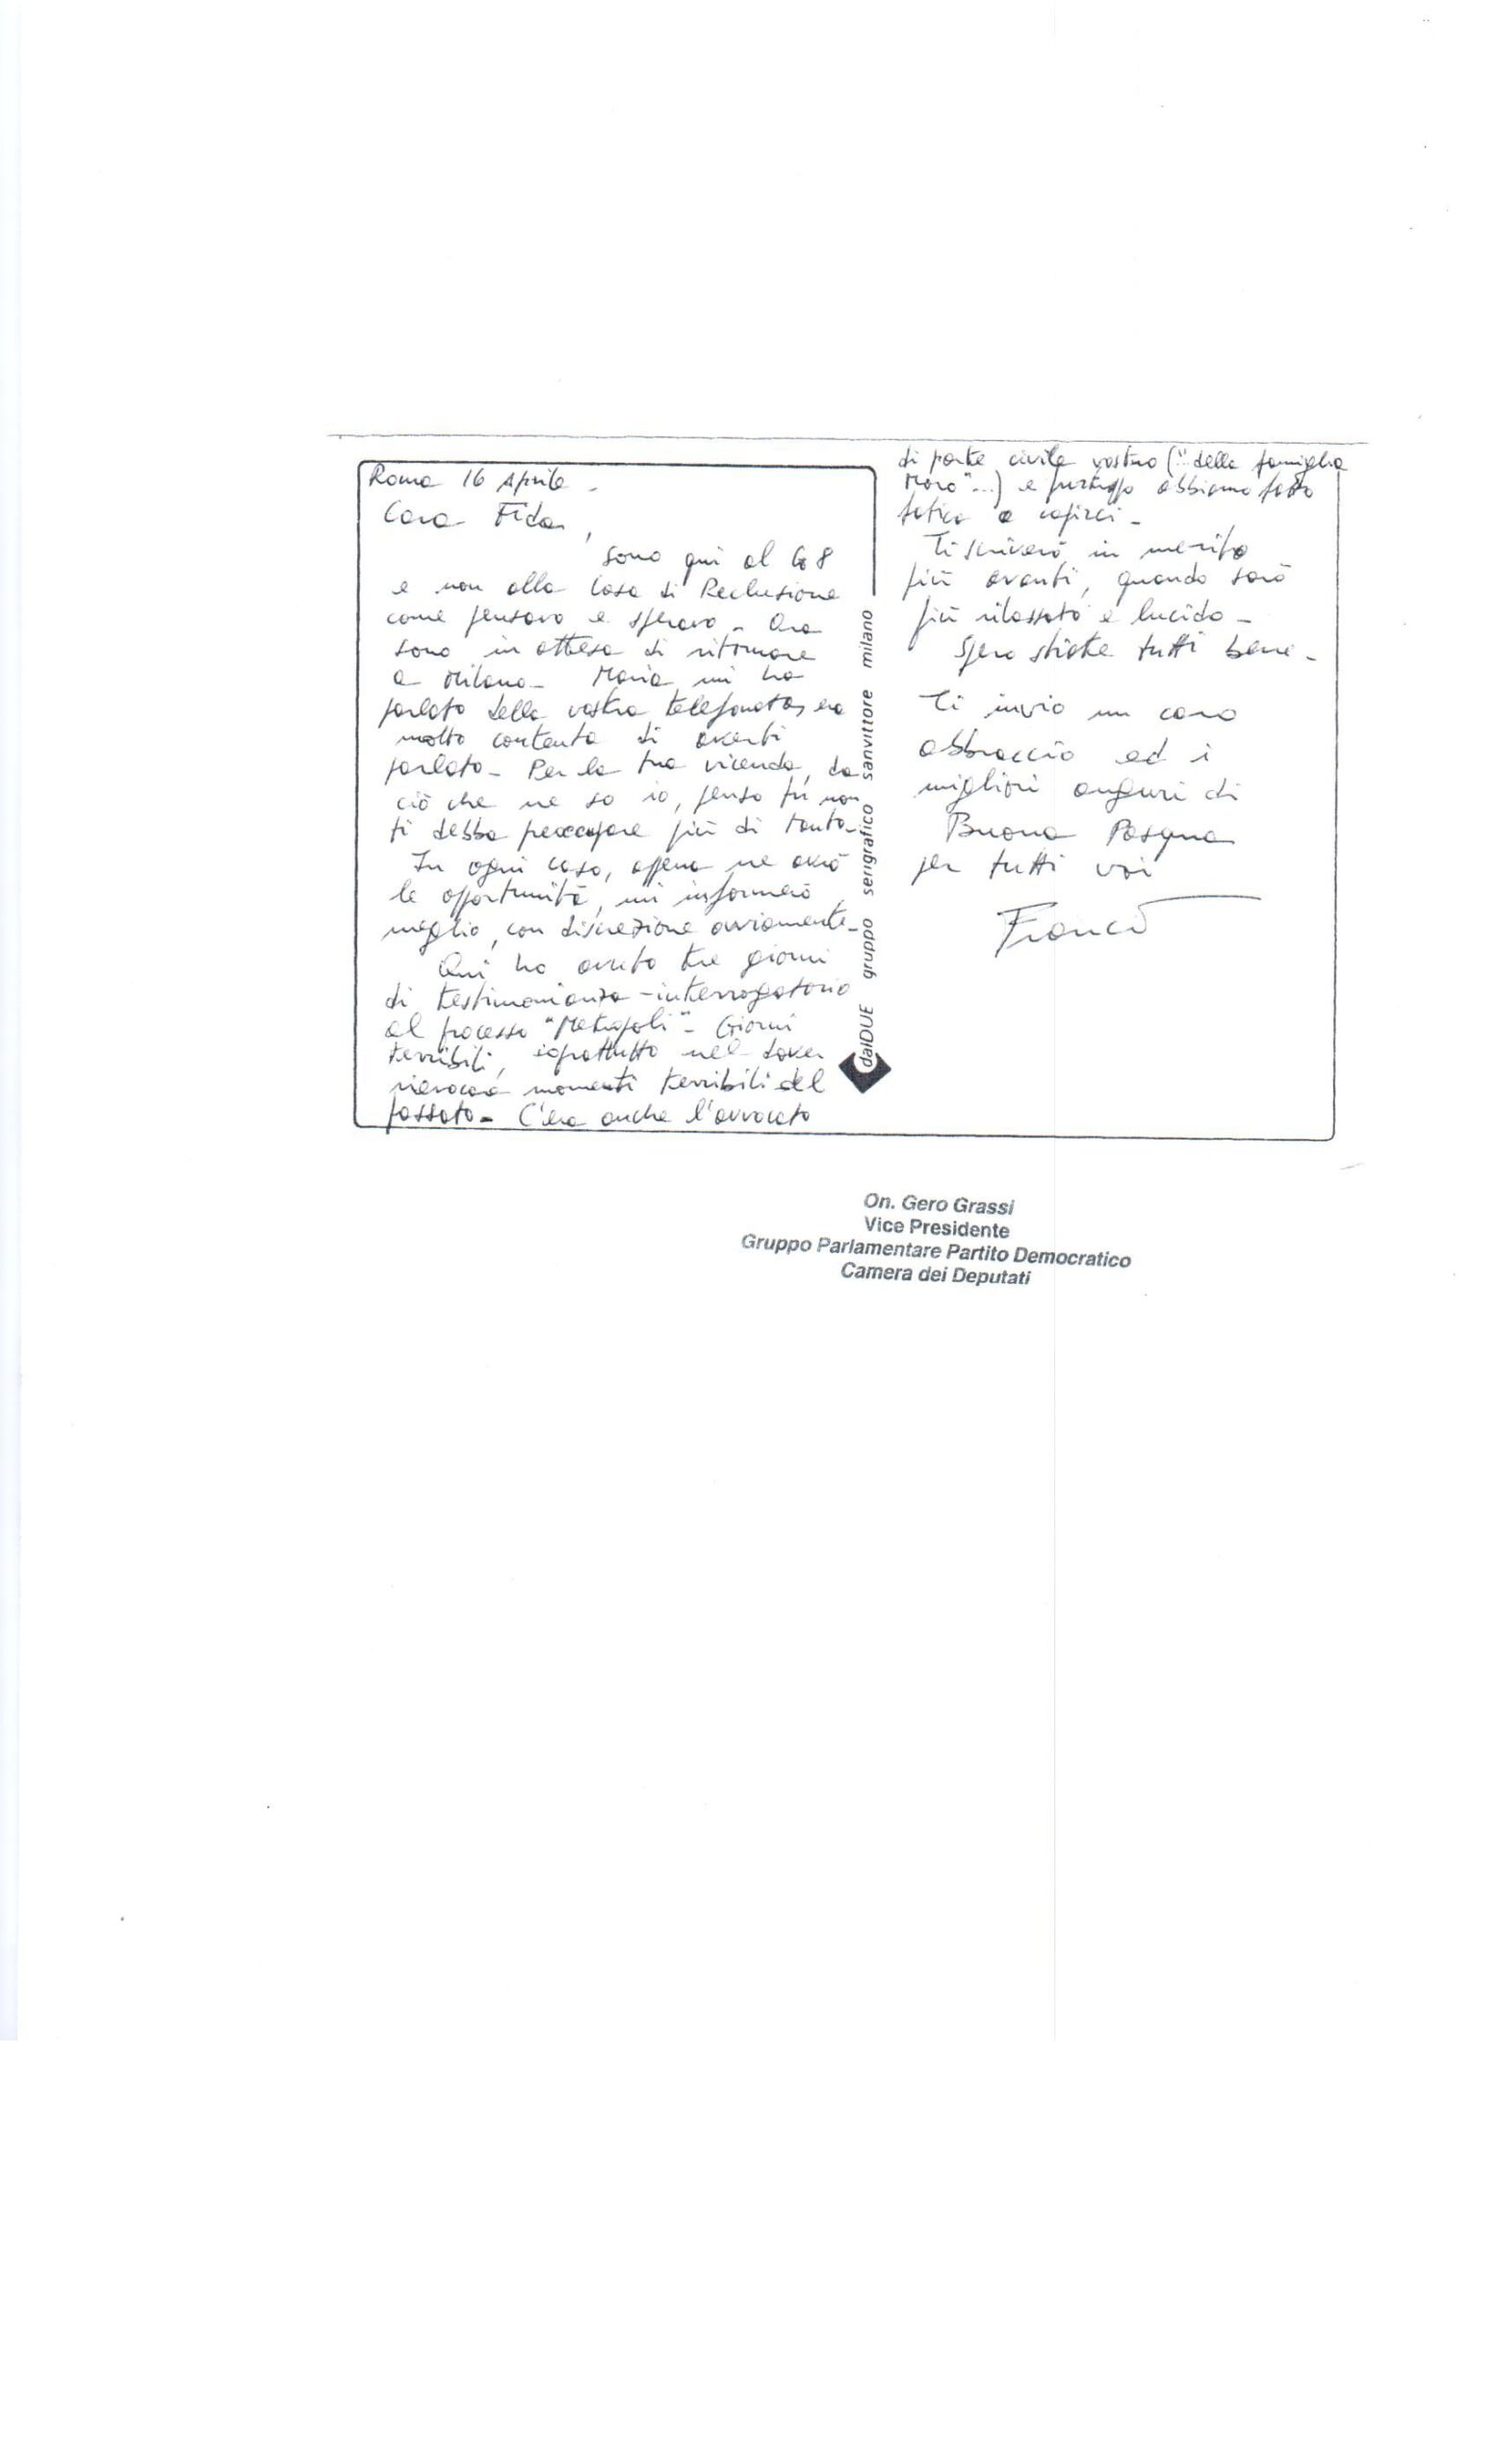 Roma 16 Aprile -
Cara Fida,
sono qui al G8
e non alla Casa di Reclusione
come pensavo e speravo - Ora
sono in attesa di ritornare
a Milano - Maria mi ha
parlato della vostra telefonata, era
molto contenta di averti
parlato - Per la tua vicenda, da
ciò che ne so io, penso tu non
ti debba preoccupare più di tanto -
In ogni caso, appena ne avrò
le opportunità, mi informerò
meglio, con discrezione ovviamente -
Qui ho avuto tre giorni
di testimonianza - interrogatorio
al processo "Metropoli" - Giorni
terribili, soprattutto nel dover
rievocare momenti terribili del
passato - C'era anche l'avvocato
dalDUE gruppo serigrafico sanvittore milano
di parte civile vostro ("della famiglia
Moro"...) e purtroppo abbiamo fatto
fatica a capirci -
Ti scriverò in merito
più avanti, quando sarò
più rilassato e lucido -
Spero stiate tutti bene -
Ti invio un caro
abbraccio ed i
migliori auguri di
Buona Pasqua
per tutti voi
Franco
On. Gero Grassi
Vice Presidente
Gruppo Parlamentare Partito Democratico
Camera dei Deputati